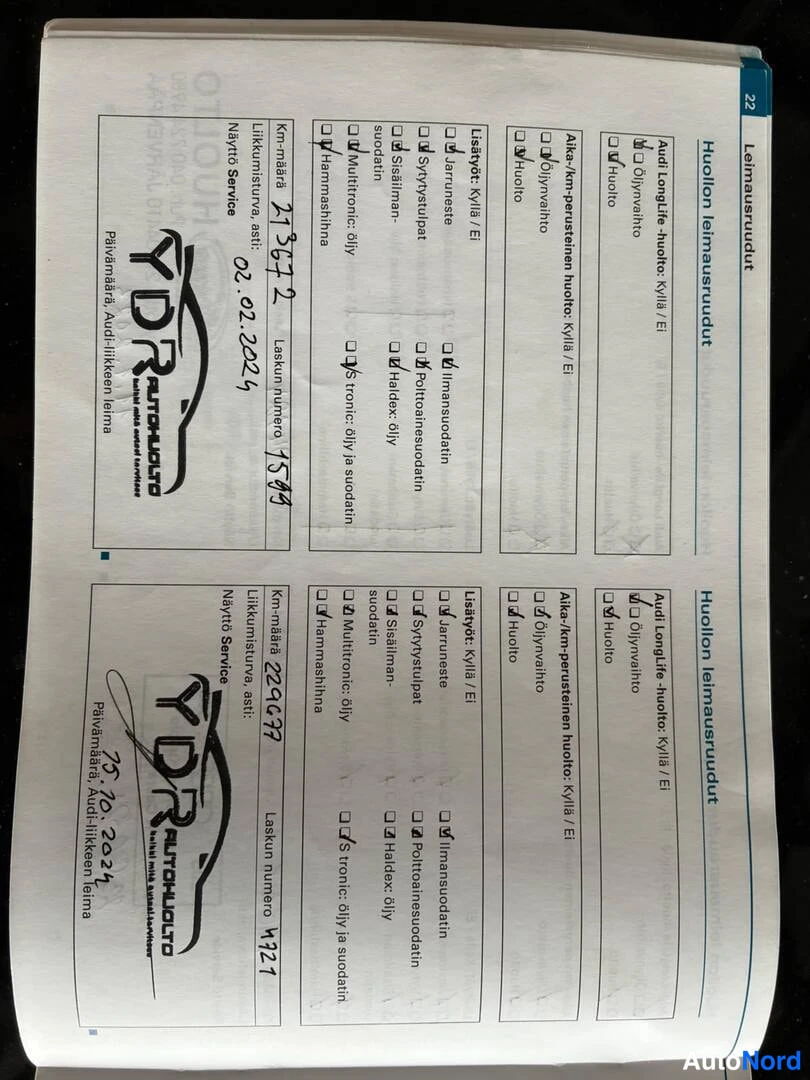 22
Leimausruudut
Huollon leimausruudut
Audi LongLife -huolto: Kyllä / Ei
Öljynvaihto
Huolto
Aika-/km-perusteinen huolto: Kyllä / Ei
Öljynvaihto
Huolto
Lisätyöt: Kyllä / Ei
Jarruneste
Ilmansuodatin
Sytytystulpat
Polttoainesuodatin
Sisäilman-
suodatin
Haldex: öljy
Multitronic: öljy
S tronic: öljy ja suodatin
Hammashihna
Km-määrä 213672 Laskun numero 1599
Liikkumisturva, asti:
Näyttö Service 02.02.2024
YDR AUTOHUOLTO
kaikki mitä autosi tarvitsee
Päivämäärä, Audi-liikkeen leima
Huollon leimausruudut
Audi LongLife -huolto: Kyllä / Ei
Öljynvaihto
Huolto
Aika-/km-perusteinen huolto: Kyllä / Ei
Öljynvaihto
Huolto
Lisätyöt: Kyllä / Ei
Jarruneste
Ilmansuodatin
Sytytystulpat
Polttoainesuodatin
Sisäilman-
suodatin
Haldex: öljy
Multitronic: öljy
S tronic: öljy ja suodatin
Hammashihna
Km-määrä Laskun numero 4721
Liikkumisturva, asti:
Näyttö Service
YDR AUTOHUOLTO
kaikki mitä autosi tarvitsee
15.10.2024
Päivämäärä, Audi-liikkeen leima
AutoNord